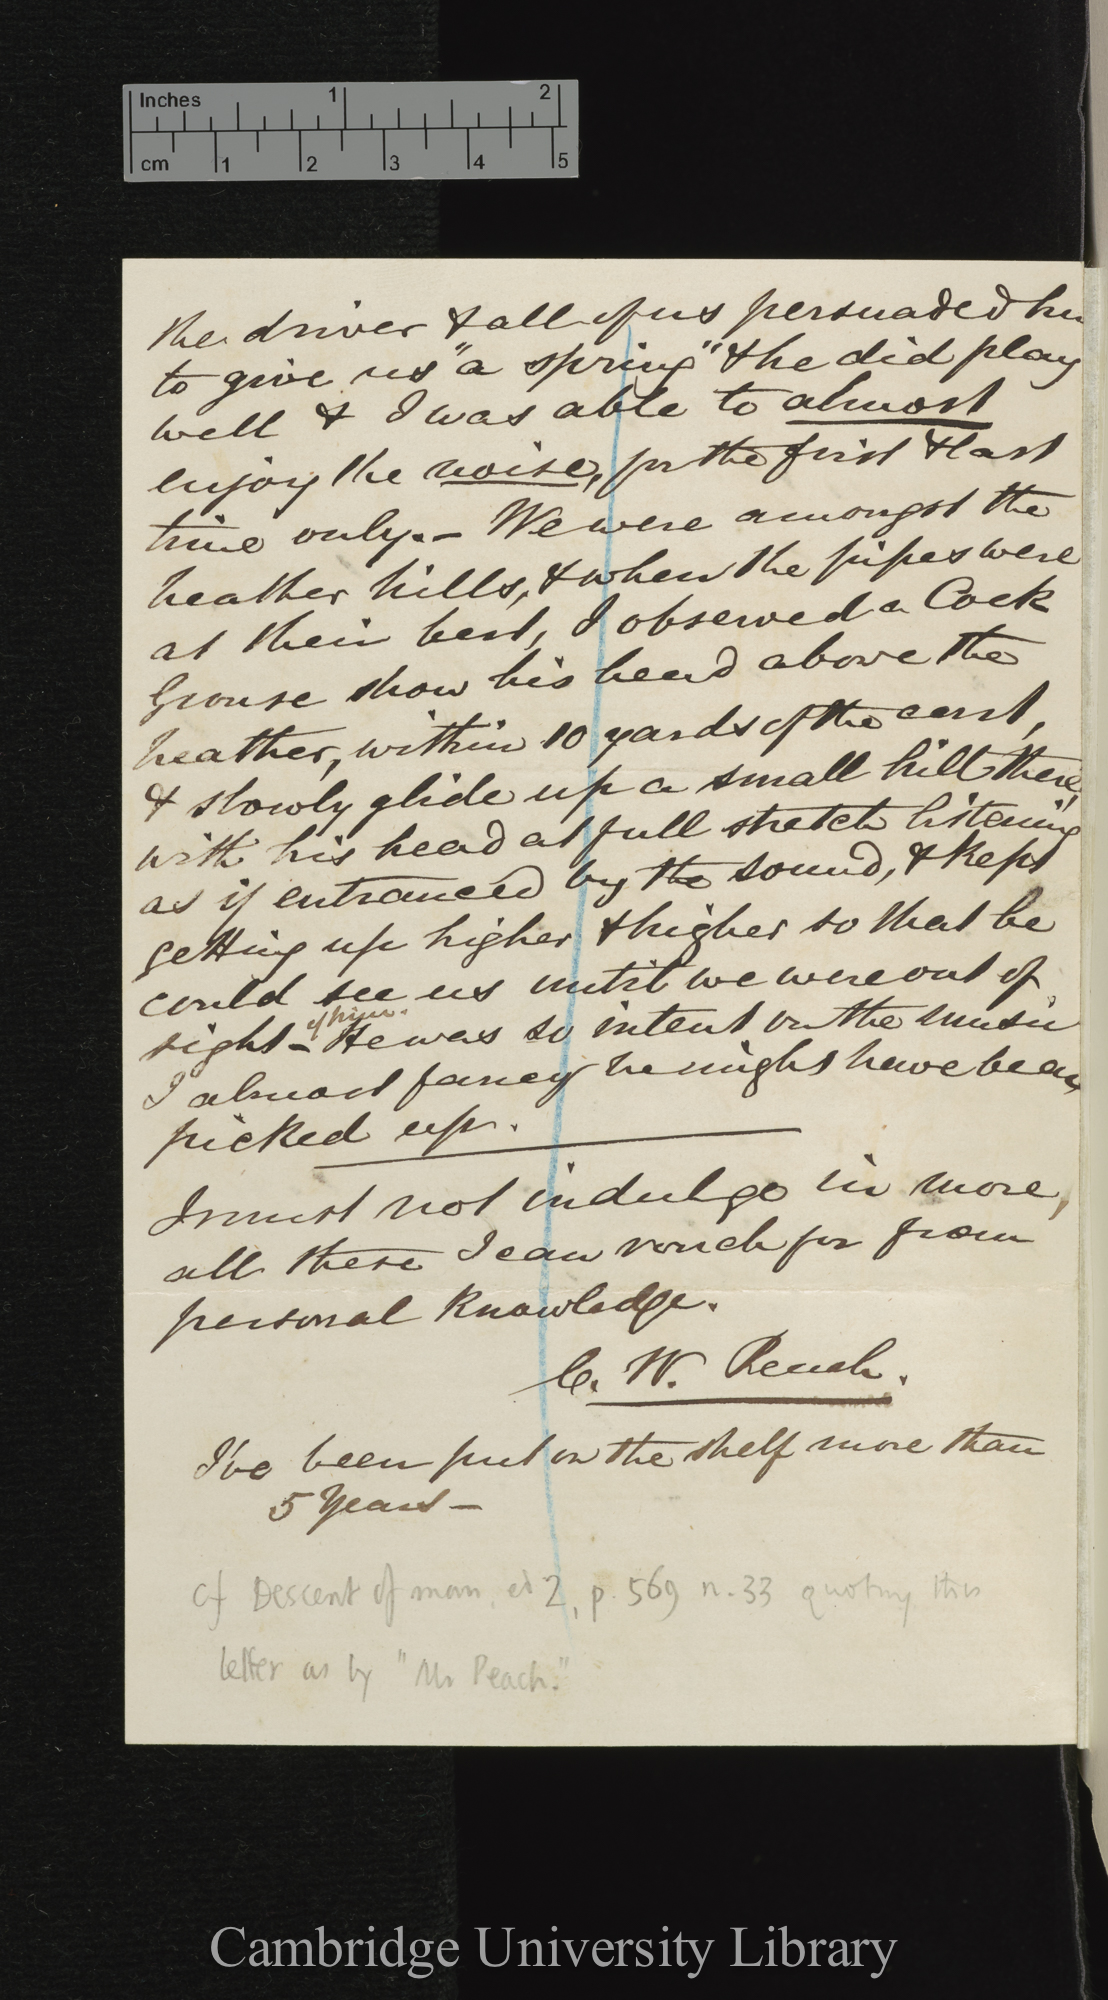 Inches 1 2
cm 1 2 3 4 5
the driver & all of us persuaded him
to give us "a spring" & he did play
well & I was able to almost
enjoy the noise, for the first & last
time only. – We were amongst the
heather hills, & when the pipes were
at their best, I observed a Cock
Grouse show his head above the
heather, within 10 yards of the cart,
& slowly glide up a small hill there,
with his head at full stretch listening
as if entranced by the sound, & kept
getting up higher & higher so that he
could see us until we were out of
of him.
sight – He was so intent on the music
I almost fancy he might have been
picked up.
I must not indulge in more,
all these I can vouch for from
personal knowledge.
C. W. Peach.
I've been put on the shelf more than
5 Years –
cf Descent of man, ed 2, p. 569 n. 33 quoting this
letter as by "Mr Peach."
Cambridge University Library